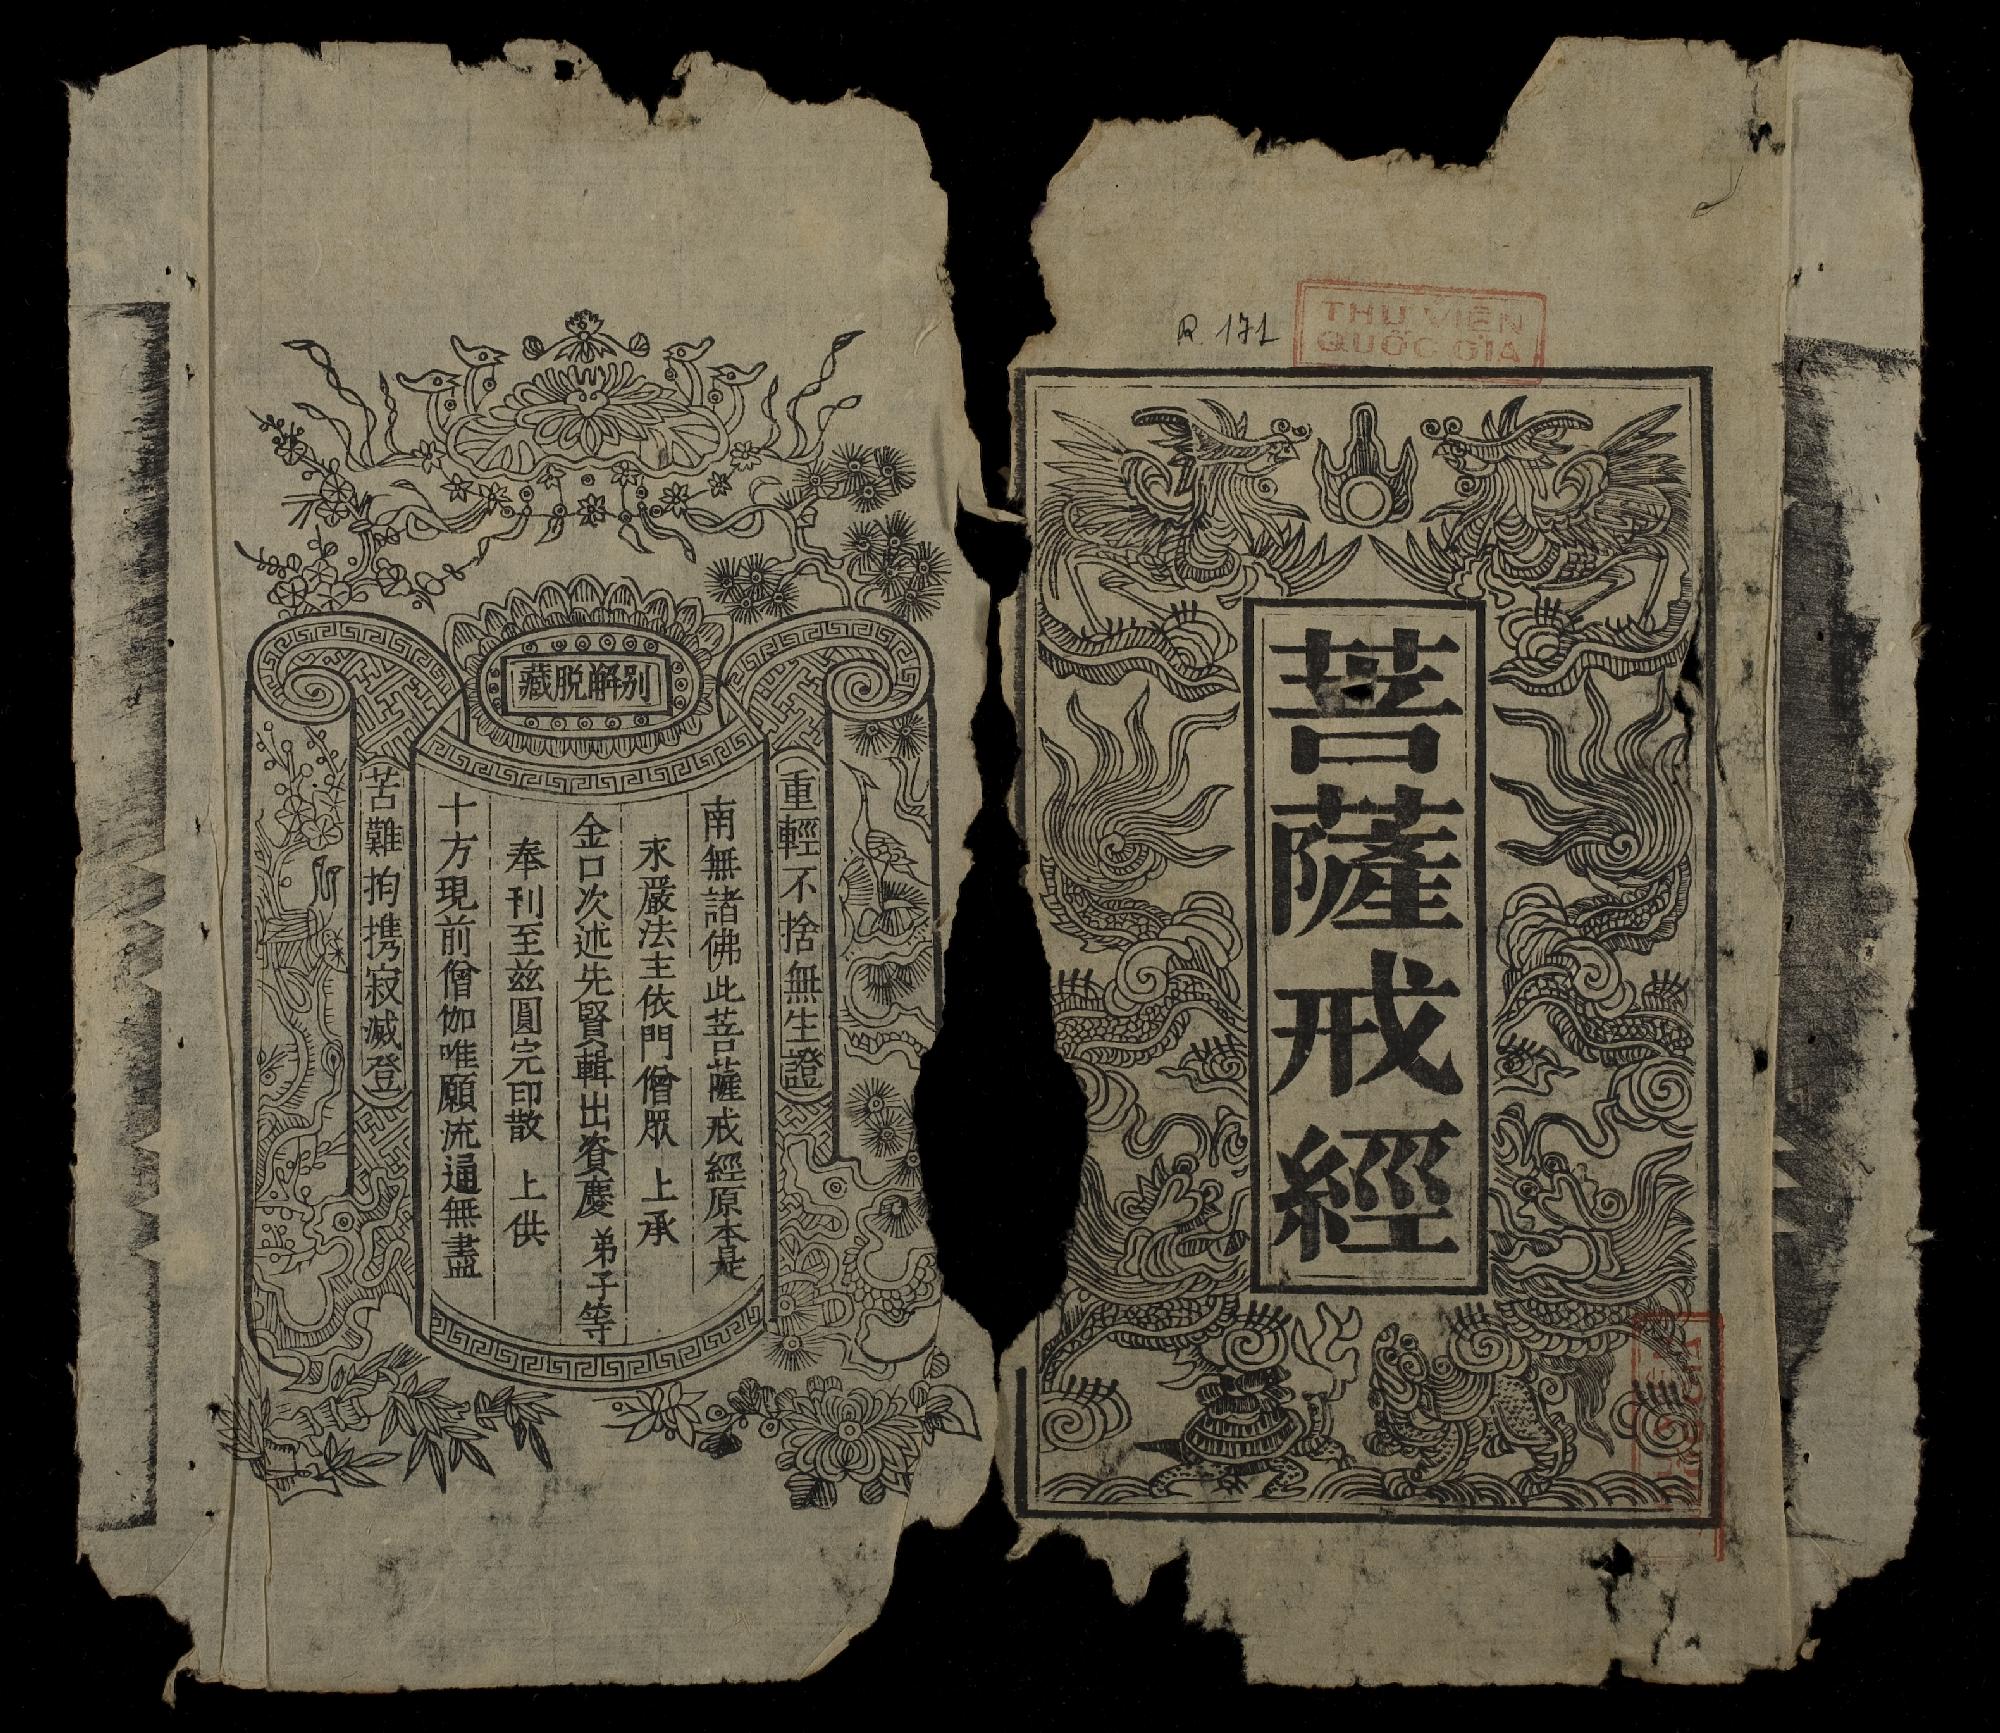 R.171
THƯ VIỆN
QUỐC GIA
菩薩戒經
别解脱藏
重輕不捨無生證
南無諸佛此菩薩戒經原本是
永嚴法主依門僧眾上承
金口次述先賢輯出資慶弟子等
奉刊至兹圓完印散上供
十方現前僧伽唯願流通無盡
苦難拘携寂滅登